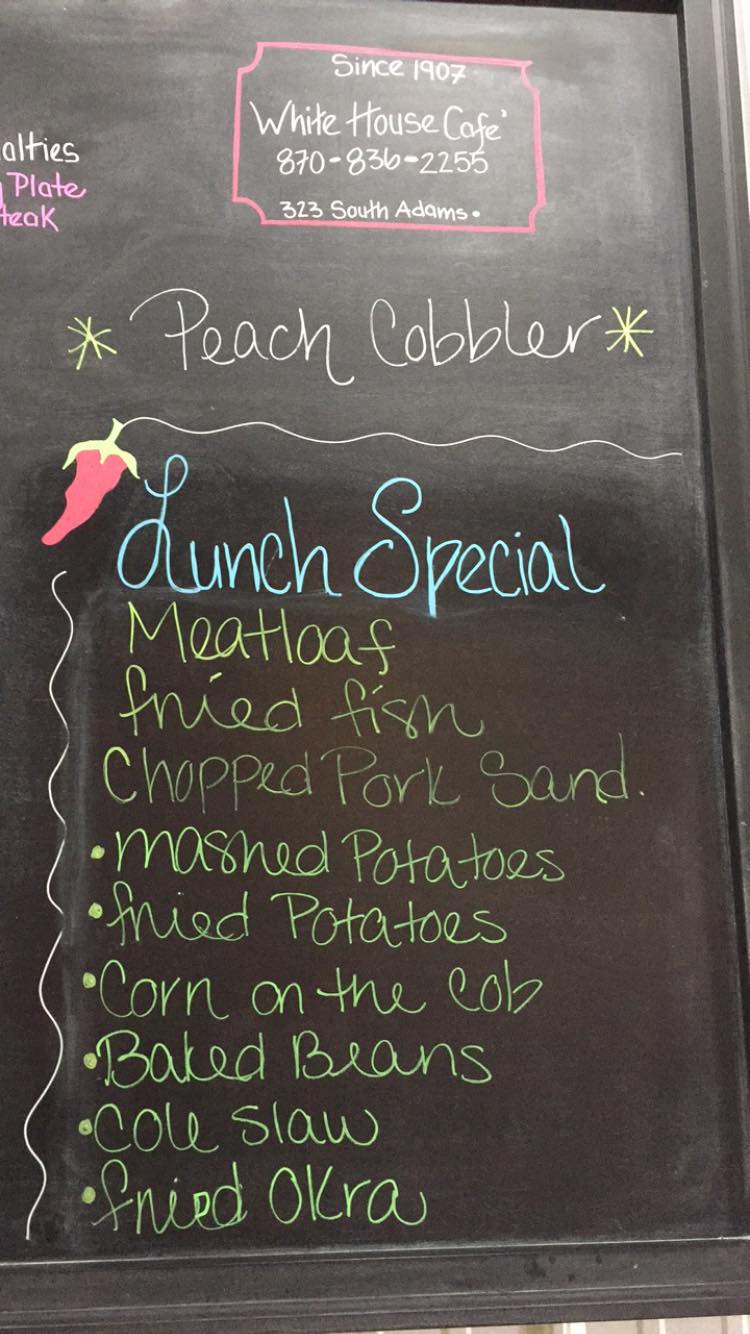 Since 1907
White House Cafe'
870-836-2255
323 South Adams.
alties
Plate
teak
* Peach Cobbler *
Lunch Special
Meatloaf
fried fish
Chopped Pork Sand.
• mashed Potatoes
• fried Potatoes
• Corn on the Cob
• Baked Beans
• Cole Slaw
• fried Okra